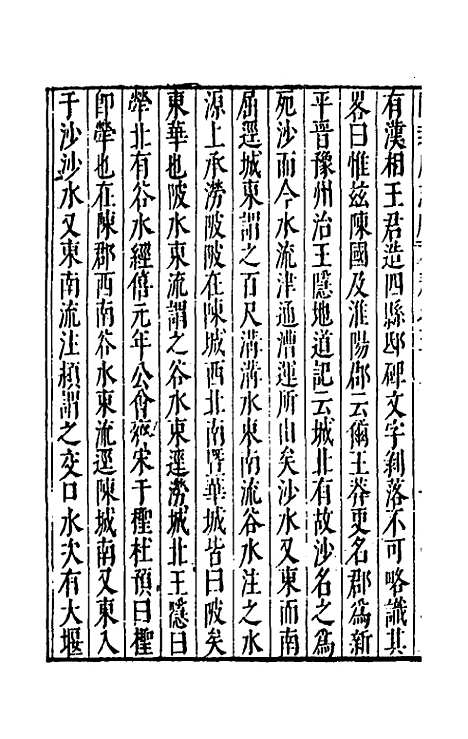 有漢相王君造四縣邸碑文字剥落不可畧識其
畧曰惟兹陳國及淮陽郡云爾王莽更名郡爲新
平晉豫州治王隱地道記云城北有故沙名之爲
宛沙而今水流津通漕運所由矣沙水又東而南
屈逕城東謂之百尺溝溝水東南流谷水注之水
源上承澇陂陂在陳城西北南曁華城皆曰陂矣
東華也陂水東流謂之谷水東逕澇城北王隱曰
犖北有谷水經僖元年公會諸宋于檉杜預曰檉
卽犖也在陳郡西南谷水東流逕陳城南又東入
于沙沙水又東南流注潁謂之交口水次有大堰